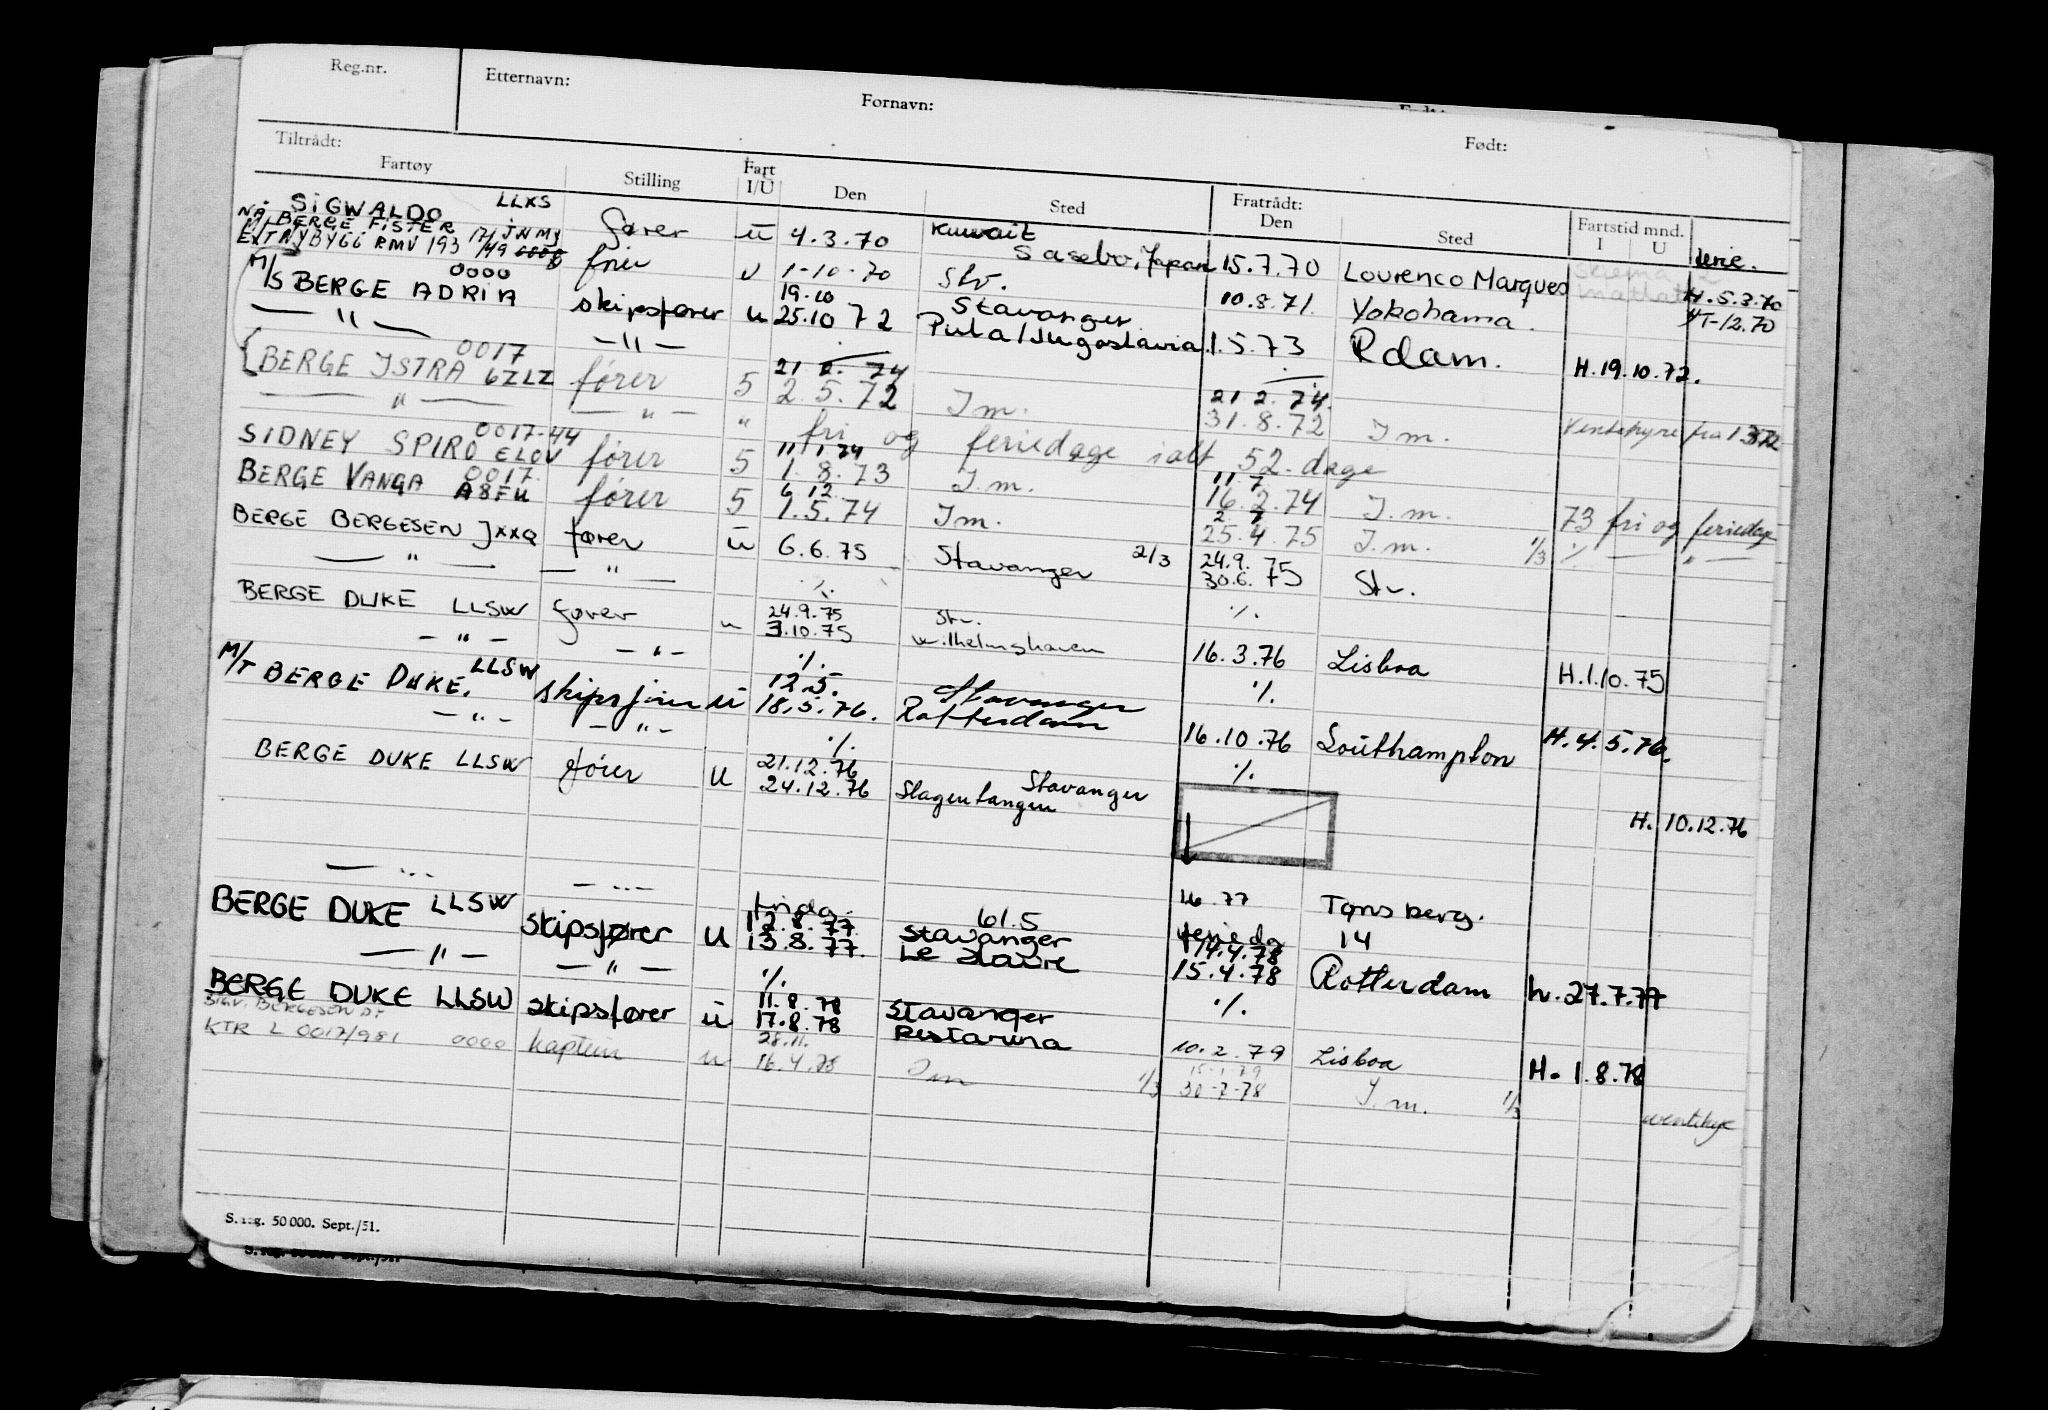 Reg.nr. Etternavn: Fornavn: Født:
Tiltrådt: Fratrådt:
Fartøy Stilling Fart I/U Den Sted Den Sted Fartstid mnd. I U
SIGWALDO LLXS fører u 4.3.70 Kuwait 15.7.70 Lourenco Marques H.5.3.70
NA. BERGE FISTER 17/ JNMJ
EXT NYBYGG RMV 193 17/49 fører u 1-10-70 Sasebo, Japan Stv. 10.8.71. Yokohama.
0000 19.10 Stavanger
M/S BERGE ADRIA skipsfører u 25.10 72 Pula/Jugoslavia 1.5.73 Rdam. H.19.10.72.
— " — — " —
0017 21 2. 74 21 2. 74.
BERGE ISTRA 6ZLZ fører 5 2.5.72 I m. 31.8.72 I m. Ventehyre fra 1.3.72
— " — — " — " fri og feriedage ialt 52. dage
0017-44 11 1 74 11 7
SIDNEY SPIRO ELOV fører 5 1.8.73 I.m. 16.2.74 I.m. 73 fri og feriedage
0017. 6 12
BERGE VANGA A8FU fører 5 1.5.74 I m. 25.4.75 I.m. 1/3
BERGE BERGESEN JXXQ fører u 6.6.75 Stavanger 2/3 24.9. 75
— " — — " — 30.6. 75 Stv.
BERGE DUKE LLSW fører u 24.9.75 Stv. ./.
— " — — " — 3.10.75 Wilhelmshaven 16.3.76 Lisboa H.1.10.75
./.
M/T BERGE DUKE. LLSW skipsfører u 12.5. Stavanger ./.
— " — — " — 18.5.76. Rotterdam 16.10.76 Southampton H.4.5.76.
./.
BERGE DUKE LLSW fører u 21.12.76 Stavanger ./.
24.12.76 Slagentangen H. 10.12.76
— " — — " — Tønsberg.
fridg. 61.5 feriedg 14
BERGE DUKE LLSW skipsfører u 12.8.77. Stavanger 14.4.78
— " — — " — 13.8.77. Le Havre 15.4.78 Rotterdam h. 27.7.77
./.
BERGE DUKE LLSW skipsfører u 11.8.78 Stavanger ./.
17.8.78 10.2.79 Lisboa H. 1.8.78
SIGV. BERGESEN D.Y. 28.11. 15-1-79
KTR L 0017/981 0000 kaptein u 16.4.78 Im 1/3 30-7-78 I.m. 1/3
S. reg. 50 000. Sept./51.